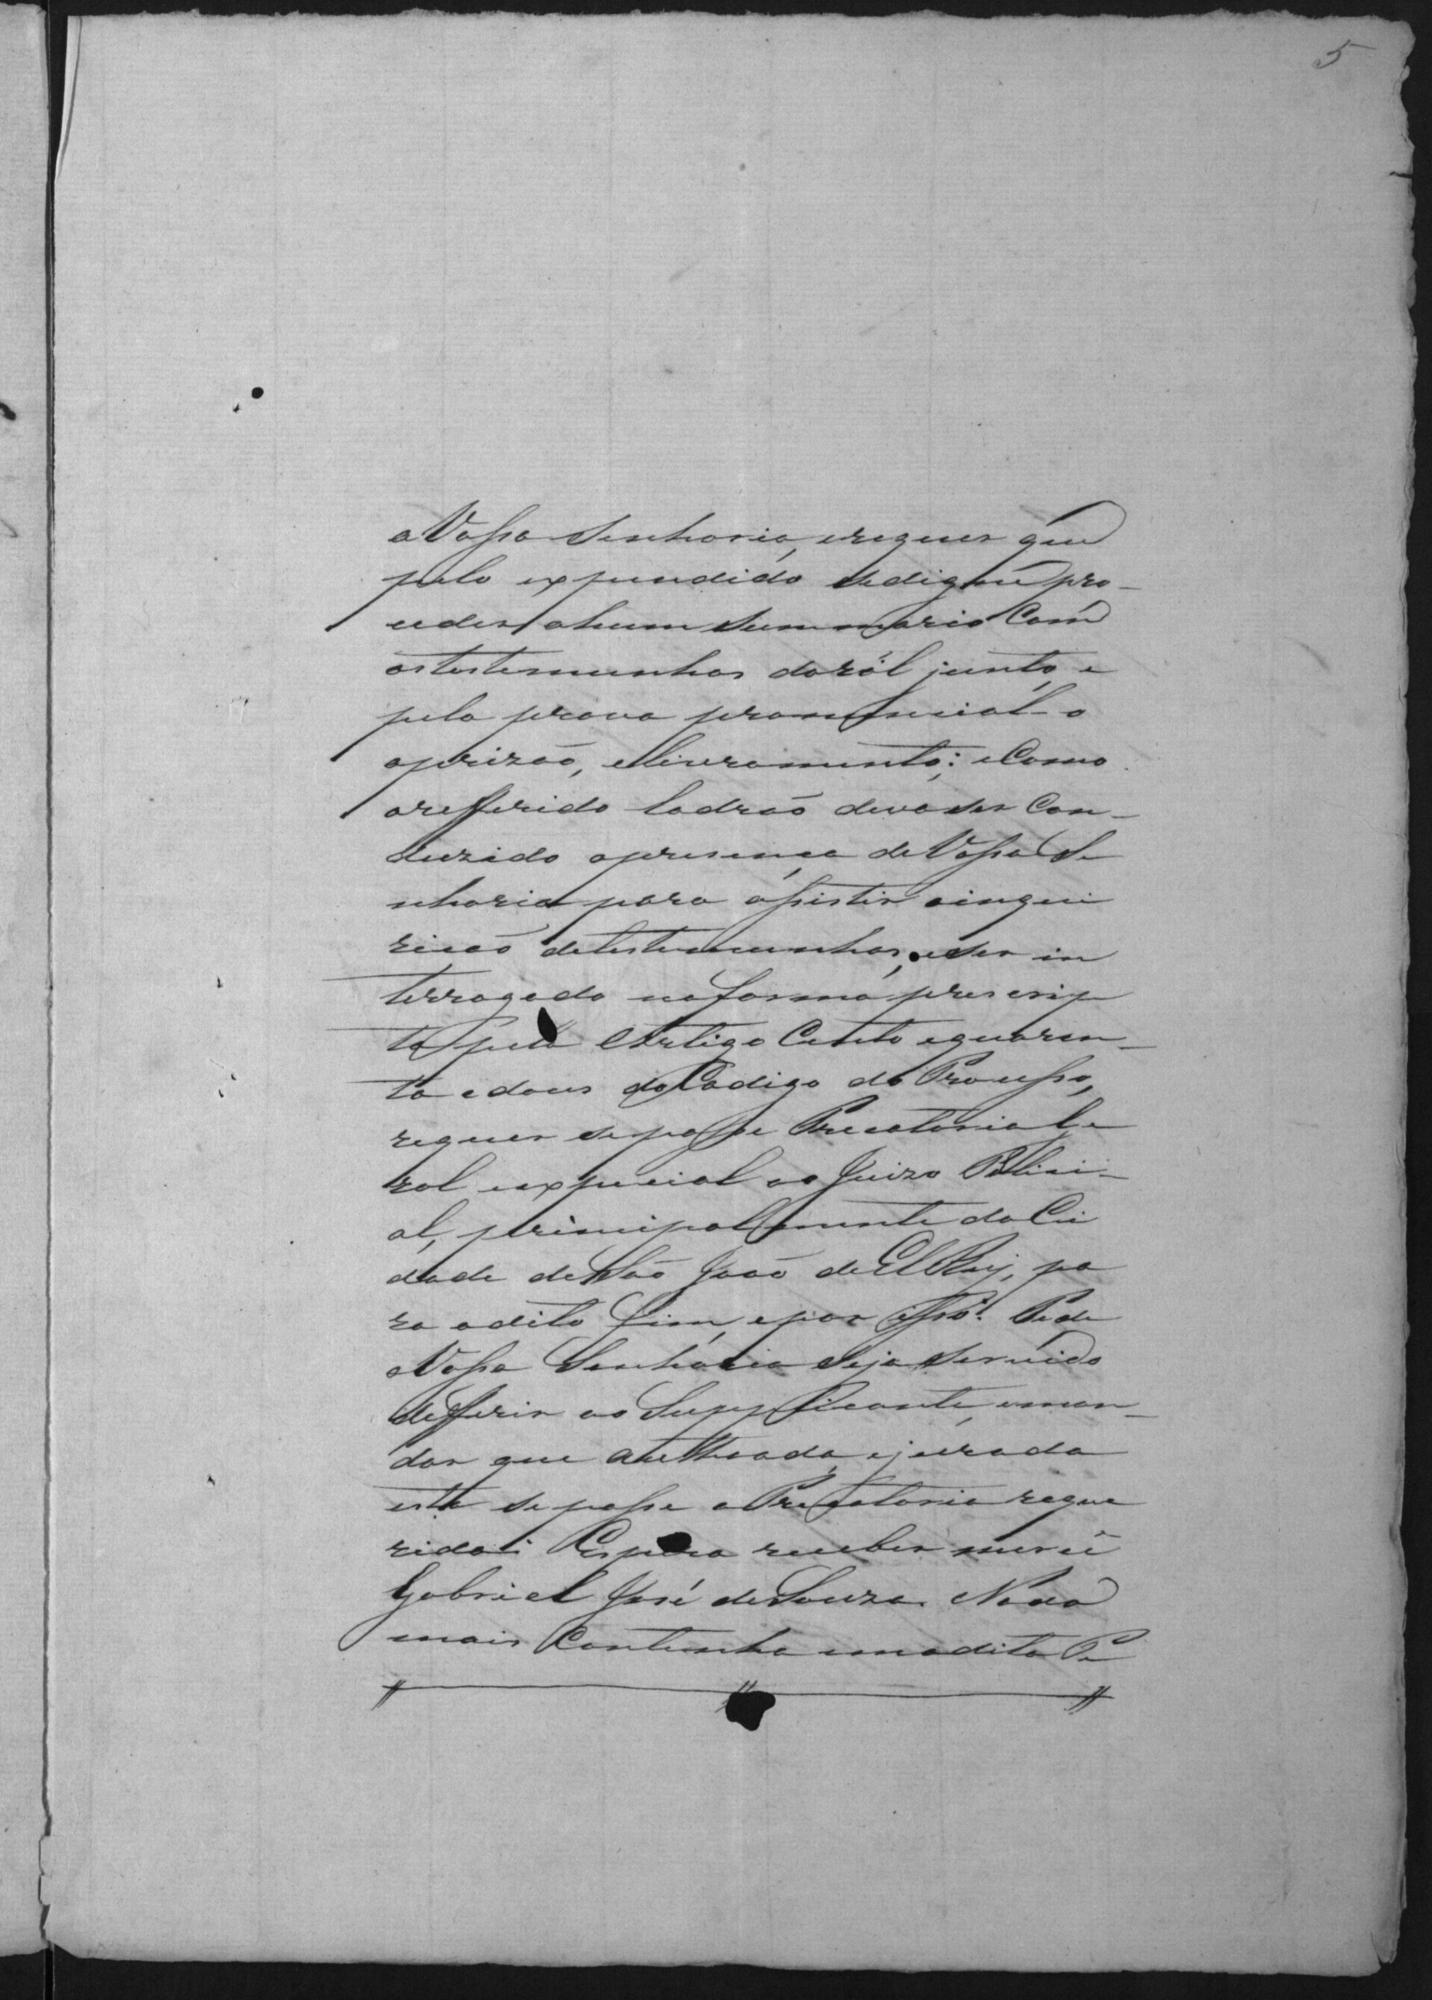 5
a Vossa Senhoria, erequer que
pelo expendido sedigne pro-
ceder ahum Summario Com
astestemunhas dorol junto, e
pela prova pronuncial-o
aprizaõ, elivramento; eComo
orefferido ladraõ deva ser Con-
duzido apresença deVossa Se
nhoria para assistir ainqui
riçaõ detestemunhas, eser in
terrogado naforma prescrip
ta pelo Artigo Cento equaren-
ta edous doCodigo do Processo,
requer sepasse Precatoria Ge
ral eexpecial ao Juizo Polici-
al, principalmente daCi
dade deSaõ Joaõ deElRey, pa
ra odito fim, epor isso: Pede
aVossa Senhoria Seja Servido
defferir ao Supplicante, eman-
dar que authoada, ejurada
esta sepasse aPrecatoria reque
rida: Espera receber mercê
Gabriel José deSouza. Nada
mais Continha emadita Pe